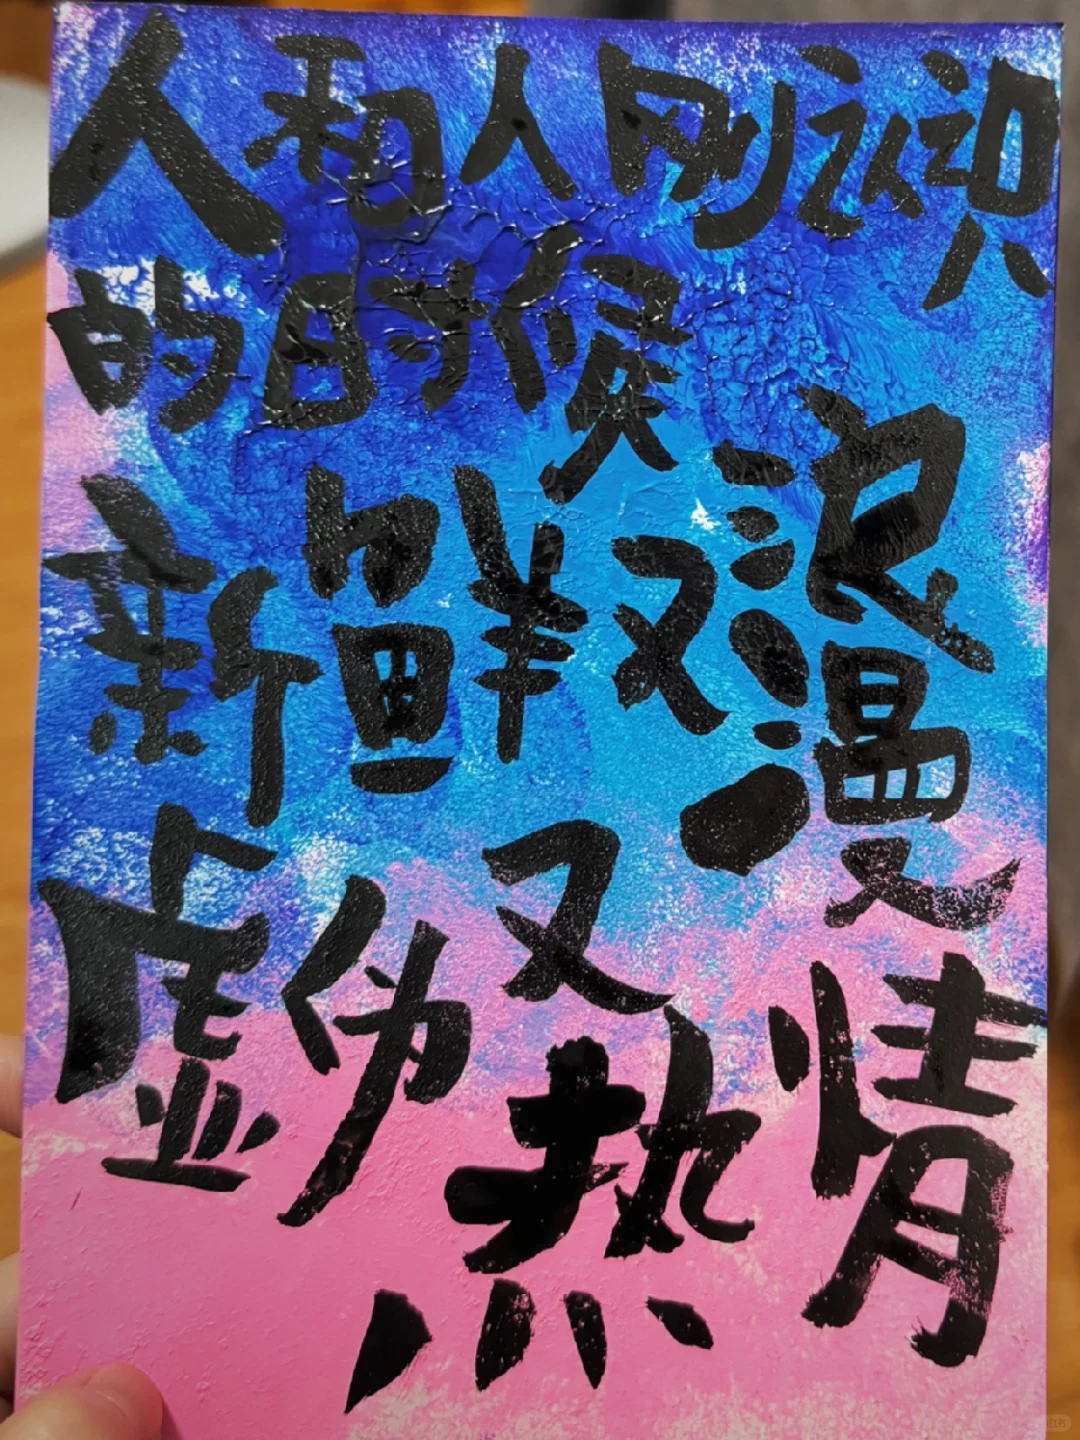 人和人刚认识
的时候
新鲜又浪漫
虚伪又热情